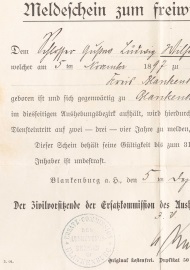 Meldeschein zum freiw
Dem Schlosser Gustav Ludwig
welcher am 5. November 1897 zu
Kreis Blankenb
geboren ist und sich gegenwärtig zu Blankenb
im diesseitigen Aushebungsbezirk aufhält, wird hierdurch
Diensteintritt auf zwei — drei — vier Jahre zu melden,
Dieser Schein behält seine Gültigkeit bis zum 31
Inhaber ist unbestraft.
Blankenburg a. H., den 5. ten
Der Zivilvorsitzende der Ersatzkommission des Aush
Original kostenfrei. Duplikat 50